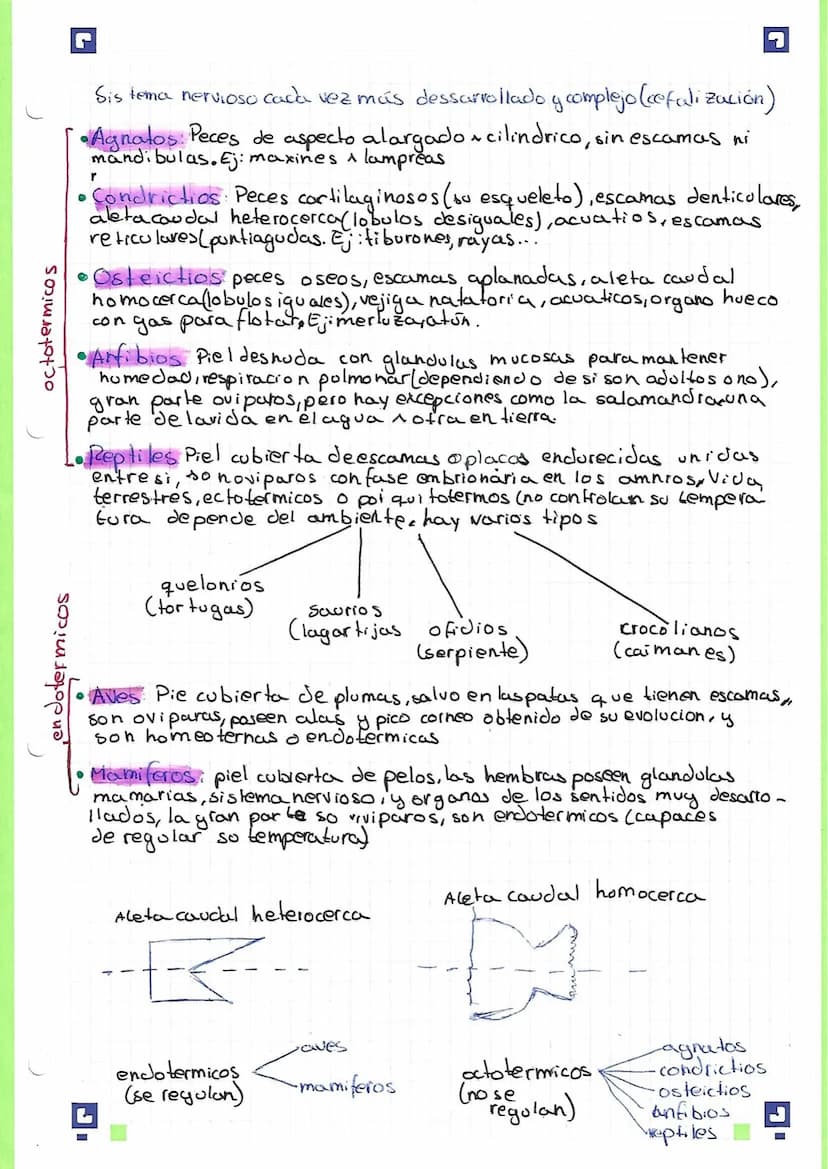 Sistema nervioso cada vez más dessarrollado y complejo (cefalización)
• Agnatos: Peces de aspecto alargado ^ cilindrico, sin escamas ni
mandibulas. Ej: maxines ^ lampreas
r
• Condrictios: Peces cartilaginosos (su esqueleto), escamas denticulares,
aleta caudal heterocerca (lobulos desiguales), acuatios, escamas
reticulares (puntiagudas. Ej: tiburones, rayas...
• Osteictios: peces oseos, escamas aplanadas, aleta caudal
homocerca (lobulos iguales), vejiga natatoria, acuaticos, organo hueco
con gas para flotar, Ej: merluza, atún.
• Anfibios: Piel desnuda con glandulas mucosas para mantener
humedad, respiracion pulmonar (dependiendo de si son adultos o no),
gran parte oviparos, pero hay excepciones como la salamandra, una
parte de la vida en el agua ^ otra en tierra.
octotermicos
• Reptiles: Piel cubierta de escamas o placas endurecidas unidas
entre si, so noviparos con fase embrionaria en los amnios, Vida
terrestres, ectotermicos o poiquitotermos (no controlan su tempera
tura depende del ambiente, hay varios tipos
quelonios
(tortugas)
saurios
(lagartijas
ofidios
(serpiente)
crocolianos
(caimanes)
endotermicos
• Aves: Pie cubierta de plumas, salvo en las patas que tienen escamas,,
son oviparas, poseen alas y pico corneo obtenido de su evolucion, y
son homeoternas o endotermicas
• Mamiferos: piel cubierta de pelos, las hembras poseen glandulas
mamarias, sistema nervioso, y organos de los sentidos muy desarro-
llados, la gran parte so viviparos, son endotermicos (capaces
de regular so temperatura)
Aleta caudal heterocerca
Aleta caudal homocerca
endotermicos
(se regulan)
aves
mamiferos
octotermicos
(no se
regulan)
agnatos
condrictios
osteictios
anfibios
reptiles